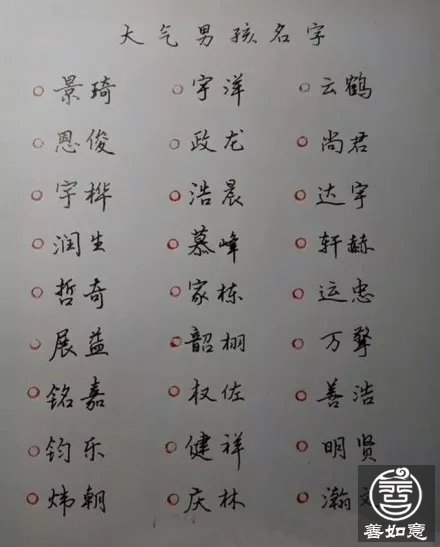 大气男孩名字
景琦 宇洋 云鹤
恩俊 政龙 尚君
宇桦 浩晨 达宇
润生 慕峰 轩赫
哲奇 家栋 运忠
展益 韶栩 万擎
铭嘉 权佐 善浩
钧乐 健祥 明贤
炜朝 庆林 瀚
善如意